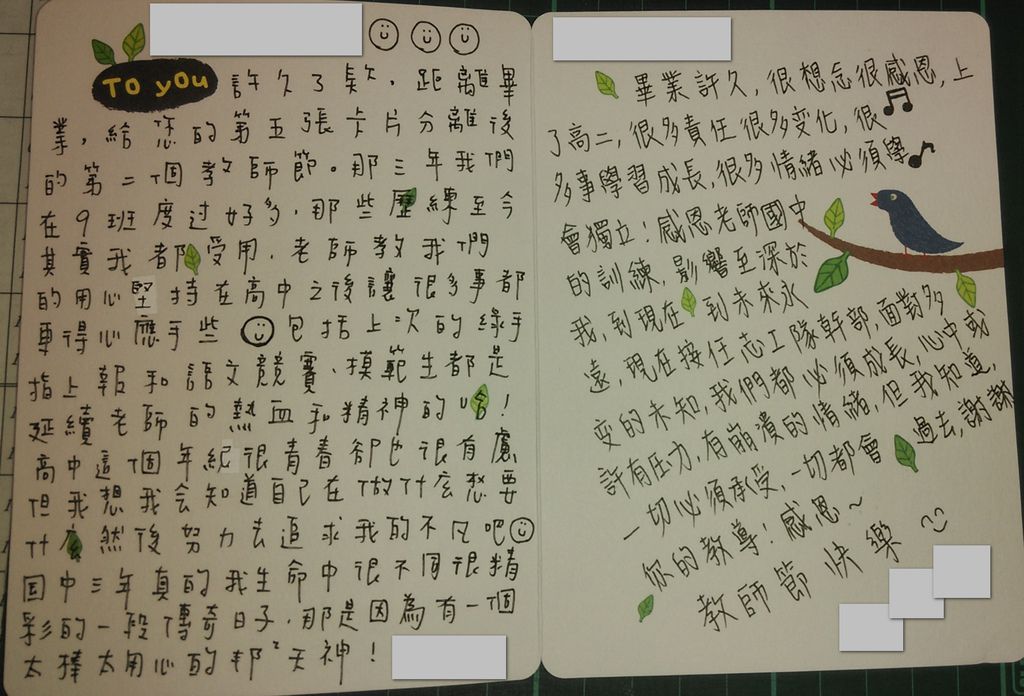 TO YOU
許久了矣,距離畢
業,給您的第五張卡片分離後
的第二個教師節。那三年我們
在9班度过好多,那些歷練至今
其實我都受用,老師教我們
的用心堅持在高中之後讓很多事都
更得心應手些 包括上次的綠手
指上報和語文競賽、模範生都是
延續老師的熱血和精神的哈!
高中這個年紀很青春卻也很有慮
但我想我会知道自己在做什么想要
什么然後努力去追求我的不凡吧
国中三年真的我生命中很不同很精
彩的一段傳奇日子,那是因為有一個
太棒太用心的邦²天神!
畢業許久,很想念很感恩,上
了高二,很多責任很多变化,很
多事學習成長,很多情緒必須學
會獨立!感恩老師國中
的訓練,影響至深於
我,到現在 到未來永
遠,現在按任志工隊幹部,面對多
变的未知,我們都必須成長,心中或
許有压力,有崩潰的情緒,但我知道,
一切必須承受,一切都會過去,謝謝
你的教導!感恩~
教師節快樂